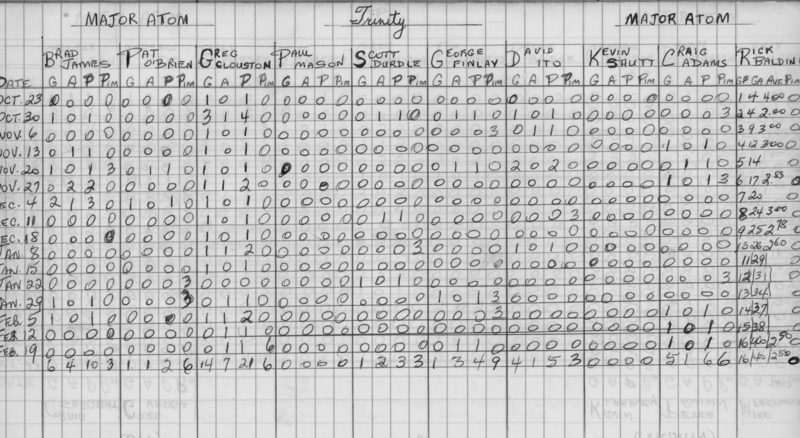 MAJOR ATOM Trinity MAJOR ATOM
BRAD JAMES PAT O'BRIEN GREG CLOUSTON PAUL MASON SCOTT DURDLE GEORGE FINLAY DAVID ITO KEVIN SHUTT CRAIG ADAMS RICK BALDINI
DATE G A P PIM G A P PIM G A P PIM G A P PIM G A P PIM G A P PIM G A P PIM G A P PIM G A P PIM GP GA AVE PIM
OCT. 23 0 0 0 0 0 0 0 0 1 0 1 0 0 0 0 0 0 0 0 0 0 0 0 0 0 0 0 0 0 0 0 0 0 0 0 0 1 4 4.00 0
OCT. 30 1 0 1 0 0 0 0 0 3 1 4 0 0 0 0 0 0 1 1 0 0 1 1 0 1 0 1 0 0 0 0 0 0 0 0 3 2 4 2.00 0
NOV. 6 0 0 0 0 0 0 0 0 1 0 1 0 0 0 0 0 0 0 0 0 0 0 0 3 0 1 1 0 0 0 0 0 0 0 0 0 3 9 3.00
NOV. 13 0 1 1 0 0 0 0 0 1 0 1 0 0 0 0 0 0 0 0 0 0 0 0 0 0 0 0 0 0 0 0 0 1 0 1 0 4 12 3.00
NOV. 20 1 0 1 3 0 1 1 0 1 0 1 0 0 0 0 0 0 0 0 0 0 1 1 0 2 0 2 0 0 0 0 0 0 1 1 0 5 14
NOV. 27 0 2 2 0 0 0 0 0 1 1 2 0 0 0 0 0 0 0 0 0 0 0 0 0 0 0 0 0 0 0 0 0 1 0 1 3 6 17 2.83
DEC. 4 2 1 3 0 1 0 1 0 1 0 1 0 0 0 0 0 0 0 0 0 0 0 0 0 0 0 0 0 0 0 0 0 0 0 0 0 7 20
DEC. 11 0 0 0 0 0 0 0 0 1 0 1 0 0 0 0 0 0 1 1 0 0 0 0 0 0 0 0 3 0 0 0 0 0 0 0 0 8 24 3.00
DEC. 18 0 0 0 0 0 0 0 0 1 0 1 0 0 0 0 0 0 0 0 0 0 0 0 0 0 0 0 0 0 0 0 0 0 0 0 0 9 25 2.78
JAN. 8 0 0 0 0 0 0 0 0 1 1 2 0 0 0 0 0 0 0 0 3 0 0 0 0 1 0 1 0 0 0 0 0 0 0 0 0 26 2.60
JAN. 15 0 0 0 0 0 0 0 0 1 0 1 0 0 0 0 0 0 0 0 0 0 0 0 0 0 0 0 0 0 0 0 0 0 0 0 0 11 29
JAN 22 0 0 0 0 0 0 0 3 0 0 0 0 0 0 0 0 1 0 1 0 0 0 0 0 0 0 0 0 0 0 0 0 0 0 0 3 12 31
JAN. 29 1 0 1 0 0 0 0 3 0 1 1 0 0 0 0 0 0 0 0 0 1 0 1 3 0 0 0 0 0 0 0 0 0 0 0 0 13 34
FEB. 5 1 0 1 0 0 0 0 0 1 1 2 0 0 0 0 0 0 0 0 0 0 0 0 3 0 0 0 0 0 0 0 0 1 0 1 0 14 37
FEB. 12 0 0 0 0 0 0 0 0 0 1 1 0 0 0 0 0 0 0 0 0 0 0 0 0 0 0 0 0 0 0 0 0 1 0 1 0 15 38
FEB. 19 0 0 0 0 0 0 0 0 0 1 1 6 0 0 0 0 0 0 0 0 0 1 1 0 0 0 0 0 0 0 0 0 1 0 1 0 16 40 2.50
6 4 10 3 1 1 2 6 14 7 21 6 0 0 0 0 1 2 3 3 1 3 4 9 4 1 5 3 0 0 0 0 5 1 6 6 16 40 2.50